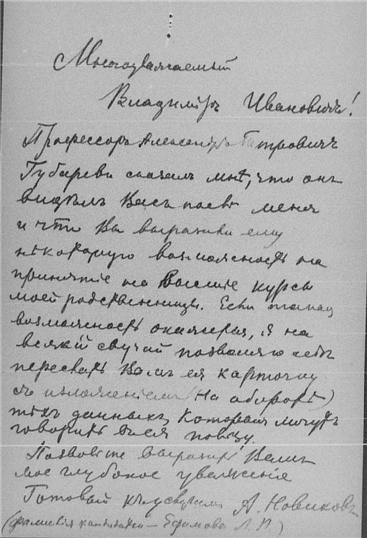 Многоуважаемый
Владиміръ Ивановичъ!
Профессоръ Александръ Петровичъ
Губаревъ сказалъ мнѣ, что онъ
видѣлъ Васъ послѣ меня
и что Вы выразили ему
нѣкоторую возможность на
принятіе на Высшие курсы
моей родственницы. Если такая
возможность окажется, я на
всякій случай позволяю себѣ
переслать Вамъ ея карточку
съ изложеніемъ (на оборотѣ)
тѣхъ данныхъ, которыя могутъ
говорить въ ея пользу.
Позвольте выразить Вамъ
мое глубокое уваженіе
Готовый къ услугамъ А. Новиковъ
(фамилія кандидатки – Ефимова Л. П.)